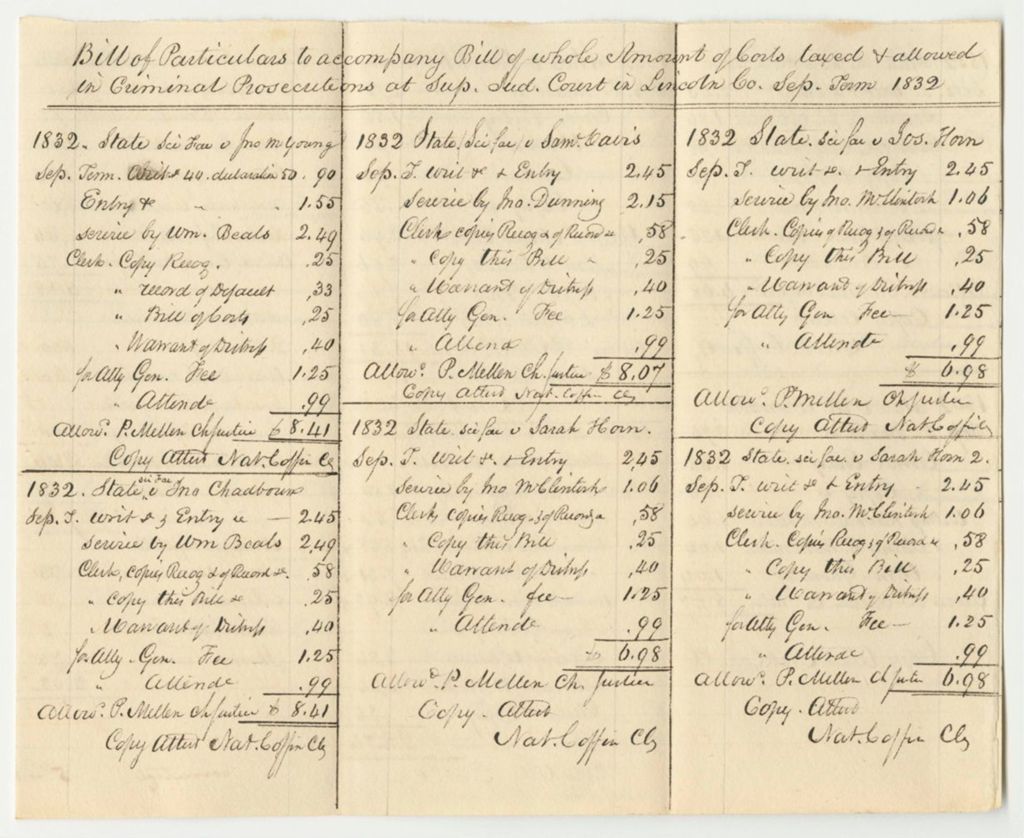 Bill of Particulars to accompany Bill of whole Amount of Costs taxed & allowed
in Criminal Prosecutions at Sup. Jud. Court in Lincoln Co. Sep. Term 1832
1832. State Sci Fac v Jno M Young
Sep. Term. Writ & 40. declaration 50. 90
Entry & " " 1.55
Service by Wm. Beals 2.49
Clerk. Copy Recog. .25
" record of Default ,33
" Bill of Costs ,25
" Warrant of Distress ,40
for Atty Gen. Fee 1.25
" Attende .99
Allowd. P. Mellen Ch Justice $8.41
Copy Attest Nat. Coffin Clk
1832. State sci Fac v Jno Chadbourn
Sep. T. writ & & Entry — 2.45
Service by Wm Beals 2,49
Clerk, copies Recog & of Record &c. 58
" copy this Bill & .25
" Warrant of Distress ,40
for Atty. Gen. Fee 1.25
" Attende .99
Allowd. P. Mellen Ch Justice $8.41
Copy Attest Nat. Coffin Clk
1832 State Sci fac v Saml. Davis
Sep. T. writ &c & Entry 2.45
Service by Jno. Dunning 2.15
Clerk copies Recog & of Record &c ,58
" Copy this Bill " ,25
" Warrant of Distress ,40
for Atty Gen. Fee 1.25
" Attend .99
Allowd. P. Mellen Ch. Justice $8.07
Copy Attest Nat. Coffin Clk
1832 State. sci fac v Sarah Horn.
Sep. T. writ &. & Entry 2.45
service by Jno McClintock 1.06
Clerk copies Recog & of Record &c ,58
" Copy this Bill ,25
" Warrant of Distress ,40
for Atty Gen. fee — 1.25
" Attende .99
$ 6.98
Allowd. P. Mellen Ch. Justice
Copy. Attest
Nat. Coffin Clk
1832 State. sci fac v Jos. Horn
Sep. T. writ &. & Entry 2.45
service by Jno. McClintock 1.06
Clerk. Copies of Recog & of Record &c ,58
" Copy this Bill ,25
" Warrant of Distress ,40
for Atty Gen Fee — 1.25
" Attende .99
$ 6.98
Allowd. P. Mellen Ch Justice
Copy Attest Nat Coffin
1832 State. sci fac. v Sarah Horn 2.
Sep. T. writ & & Entry 2.45
service by Jno. McClintock 1.06
Clerk. Copies Recog & of Record &c ,58
" Copy this Bill ,25
" Warrant of Distress ,40
for Atty Gen. Fee — 1.25
" Attende .99
Allowd. P. Mellen Ch Justice 6.98
Copy. Attest
Nat. Coffin Clk